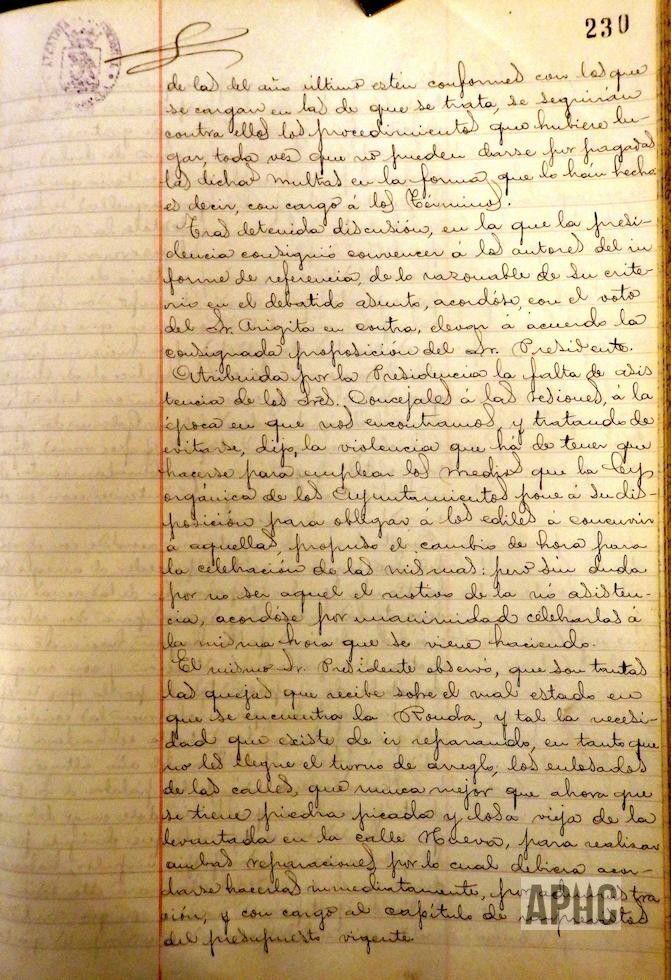 230
de las del año último estén conformes con los que
se cargan en las de que se trata, se seguirán
contra ellos los procedimientos que hubiere lu-
gar, toda vez que no pueden darse por pagadas
las dichas multas en la forma que lo hán hecho
es decir, con cargo á los Términos.
Tras detenida discusión, en la que la presi-
dencia consiguió convencer á los autores del in
forme de referencia, de lo razonable de su crite-
rio en el debatido asunto, acordóse, con el voto
del Sr. Arigita en contra, elevar á acuerdo la
consignada proposición del Sr. Presidente.
Atribuida por la Presidencia la falta de asis
tencia de los Sres. Concejales á las sesiones, á la
época en que nos encontramos, y tratando de
evitarse, dijo, la violencia que há de tener que
hacerse para emplear los medios que la Ley
orgánica de los Ayuntamientos pone á su dis-
posición para obligar á los ediles á concurrir
á aquellas, propuso el cambio de hora para
la celebración de las mismas: pero sin duda
por no ser aquel el motivo de la nó asisten-
cia, acordóse por unanimidad celebrarlas á
la misma hora que se viene haciendo.
El mismo Sr. Presidente observó, que son tantas
las quejas que recibe sobre el mal estado en
que se encuentra la Ronda, y tal la necesi-
dad que existe de ir reparando, en tanto que
no les llegue el turno de arreglo, los enlosados
de las calles, que nunca mejor que ahora que
se tiene piedra picada y losa vieja de la
levantada en la calle Nueva, para realizar
ambas reparaciones, por lo cual debiera acor-
darse hacerlas inmediatamente, por
ción, y con cargo al capítulo de imprevistos
del presupuesto vigente.
APHC